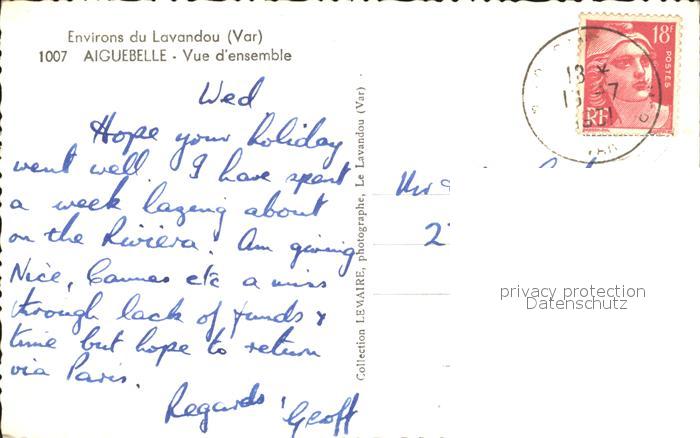 Environs du Lavandou (Var)
1007 AIGUEBELLE - Vue d'ensemble
Wed
Hope your holiday
went well. I have spent
a week lazing about
on the Riviera. Am giving
Nice, Cannes etc a miss
through lack of funds &
time but hope to return
via Paris.
Regards, Geoff
Collection LEMAIRE, photographe, Le Lavandou (Var)
18F
POSTES
RF
13 *
13-7
VAR
privacy protection
Datenschutz